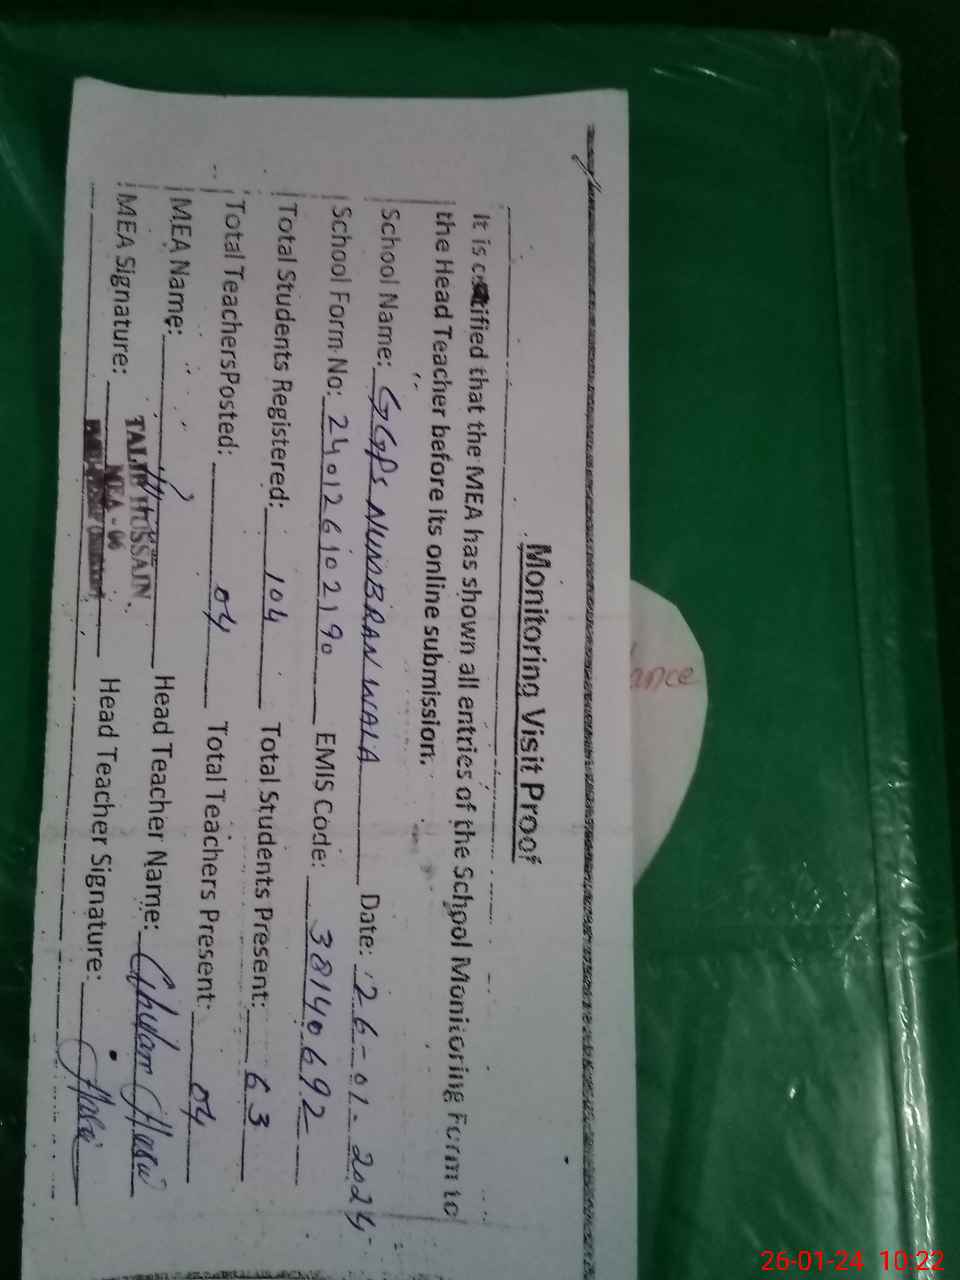 Monitoring Visit Proof
It is certified that the MEA has shown all entries of the School Monitoring Form to
the Head Teacher before its online submission.
School Name: GGPS NUMBRAN WALA Date: 26-01-2024
School Form No: 240126102190 EMIS Code: 38140692
Total Students Registered: 104 Total Students Present: 63
Total TeachersPosted: 04 Total Teachers Present: 04
MEA Name: Head Teacher Name: Ghulam
MEA Signature: Head Teacher Signature:
TALIB HUSSAIN
MEA - 06
ance
26-01-24 10:22